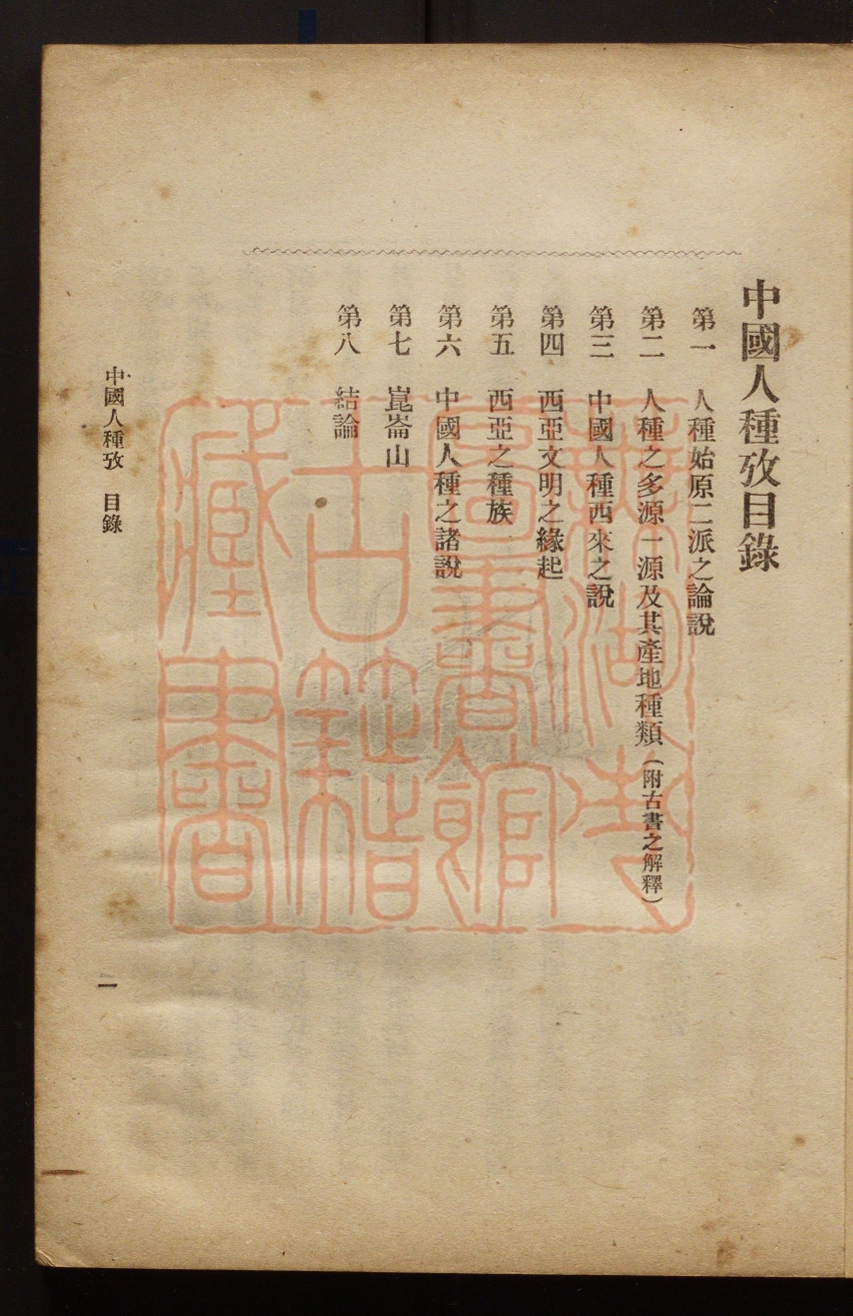 中國人種攷目錄
第一 人種始原二派之論說
第二 人種之多源一源及其產地種類（附古書之解釋）
第三 中國人種西來之說
第四 西亞文明之緣起
第五 西亞之種族
第六 中國人種之諸說
第七 崑崙山
第八 結論
中國人種攷 目錄